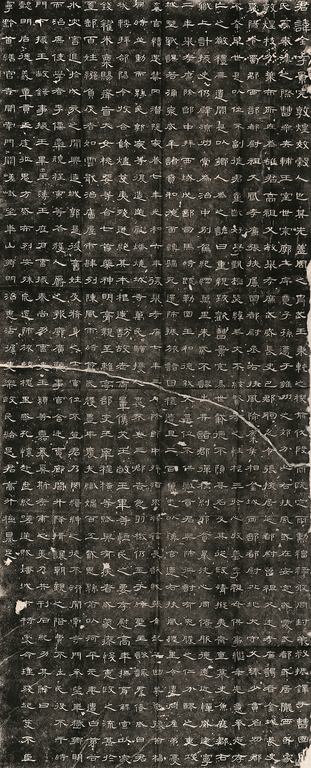 君諱全字景完敦煌效穀人也其先蓋周之胄武王秉乾之機翦伐殷商既定爾勳福祿攸同封弟叔振鐸于曹國因
氏焉秦漢之際曹參夾輔王室世宗廓土斥竟子孫遷于雍州之郊分止右扶風或在安定或處武都或居隴西或家
敦煌枝分葉布所在為雄君高祖父敏舉孝廉武威長史巴郡朐忍令張掖居延都尉曾祖父述孝廉謁者金城長史
夏陽令蜀郡西部都尉祖父鳳孝廉張掖屬國都尉丞右扶風隃麋侯相金城西部都尉北地太守父琫少貫名州郡
不幸早世是以位不副德君童齔好學甄極毖緯無文不綜賢孝之性根生於心收養季祖母供事繼母先意承志存
亡之敬禮無遺闕是以鄉人為之諺曰重親致歡曹景完易世載德不隕其名及其從政清擬夷齊直慕史魚歷郡右
職上計掾史仍辟涼州常為治中別駕紀綱萬里朱紫不謬出典諸郡彈枉糾邪貪暴洗心同僚服德遠近憚威建寧
二年舉孝廉除郎中拜西域戊部司馬時疏勒國王和德弒父篡位不供職貢君興師征討有兗膿之仁分醪之惠攻
城野戰謀若涌泉威牟諸賁和德面縛歸死還師振旅諸國禮遺且二百萬悉以薄官遷右扶風槐里令遭同產弟憂
棄官續遇禁罔潛隱家巷七年光和六年復舉孝廉七年三月除郎中拜酒泉祿福長訞賊張角起兵幽冀兗豫荊楊
同時並動而縣民郭家等復造逆亂燔燒城寺萬民騷擾人裹不安三郡告急羽檄仍至于時聖主諮諏群僚咸曰君
哉轉拜郃陽令收合餘燼芟夷殘迸絕其本根遂訪故老商量儁艾王敞王畢等恤民之要存慰高年撫育鰥寡以家
錢糴米粟賜癃盲大女桃婓等合七首藥神明膏親至離亭部吏王皋程橫等賦與有疾者咸蒙瘳悛惠政之流甚於
置郵百姓繈負反者如雲戢治廧屋市肆列陳風雨時節歲獲豐年農夫織婦百工戴恩縣前以河平元年遭白茅谷
水災害退於戌亥之間興造城郭是後舊姓及脩身之士官位不登君乃閔縉紳之徒不濟開南寺門承望華嶽鄉明
而治庶使學者李儒欒規程寅等各獲人爵之報廓廣聽事官舍廷曹廊閤升降揖讓朝覲之階費不出民役不干時
門下掾王敞錄事掾王畢主簿王歷戶曹掾秦尚功曹史王顓等嘉慕奚斯考甫之美乃共刊石紀功其辭曰
懿明后德義章貢王庭征鬼方威布烈安殊荒還師旅臨槐里感孔懷赴喪紀嗟逆賊燔城市特受命理殘圮芟不臣
寧黔首繕官寺開南門闕嵯峨望華山鄉明治惠沾渥吏樂政民給足君高升極鼎足